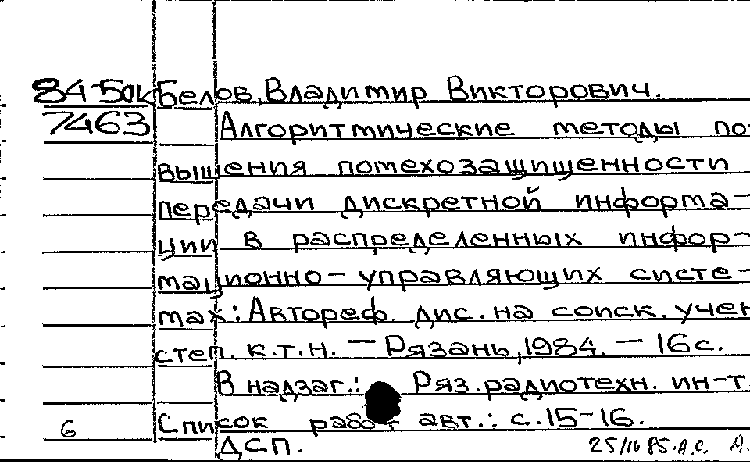 84-50к Белов, Владимир Викторович.
7463 Алгоритмические методы по-
вышения помехозащищенности
передачи дискретной информа-
ции в распределенных инфор-
мационно-управляющих систе-
мах: Автореф. дис. на соиск. учен
степ. к.т.н. — Рязань, 1984. — 16с.
В надзаг.: Ряз. радиотехн. ин-т
6 Список работ авт.: с. 15-16.
ДСП. 85.А.С. Д.